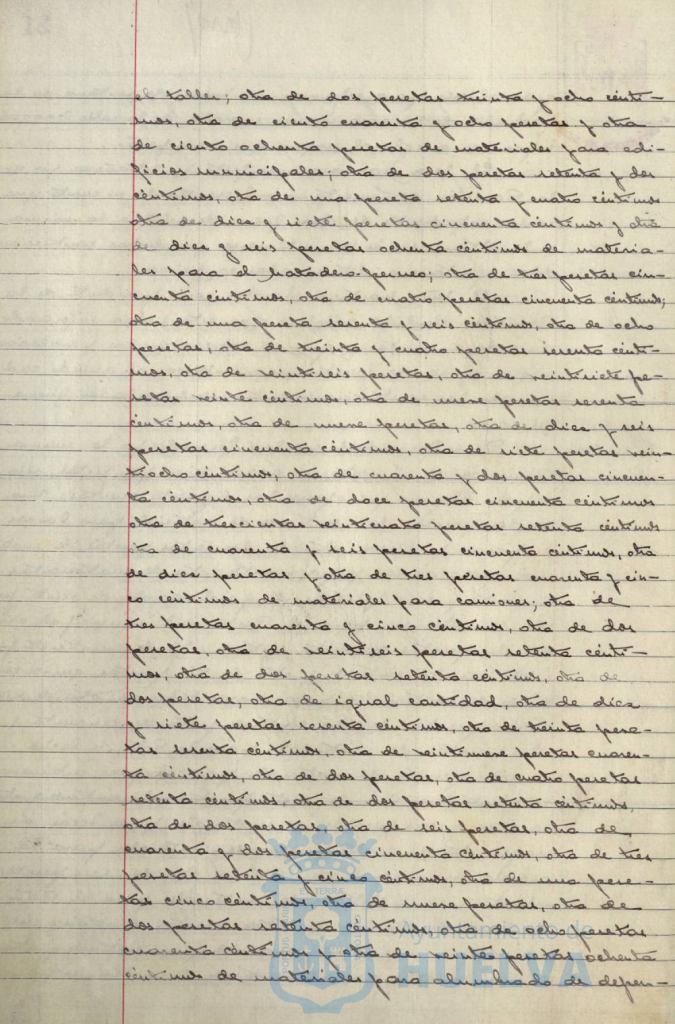 el taller; otra de dos pesetas treinta y ocho cénti-
mos, otra de ciento cuarenta y ocho pesetas y otra
de ciento ochenta pesetas de materiales para edi-
ficios municipales; otra de dos pesetas setenta y dos
céntimos, otra de una peseta setenta y cuatro céntimos
otra de diez y siete pesetas cincuenta céntimos y otra
de diez y seis pesetas ochenta céntimos de materia-
les para el matadero-perneo; otra de tres pesetas cin-
cuenta céntimos, otra de cuatro pesetas cincuenta céntimos;
otra de una peseta sesenta y seis céntimos, otra de ocho
pesetas, otra de treinta y cuatro pesetas sesenta cénti-
mos, otra de veintiseis pesetas, otra de veintisiete pe-
setas veinte céntimos, otra de nueve pesetas sesenta
céntimos, otra de nueve pesetas, otra de diez y seis
pesetas cincuenta céntimos, otra de siete pesetas vein-
tiocho céntimos, otra de cuarenta y dos pesetas cincuen-
ta céntimos, otra de doce pesetas cincuenta céntimos
otra de trescientas veinticuatro pesetas setenta céntimos
otra de cuarenta y seis pesetas cincuenta céntimos, otra
de diez pesetas y otra de tres pesetas cuarenta y cin-
co céntimos de materiales para camiones; otra de
tres pesetas cuarenta y cinco céntimos, otra de dos
pesetas, otra de veintiseis pesetas setenta cénti-
mos, otra de dos pesetas setenta céntimos, otra de
dos pesetas, otra de igual cantidad, otra de diez
y siete pesetas sesenta céntimos, otra de treinta pese-
tas sesenta céntimos, otra de veintinueve pesetas cuaren-
ta céntimos, otra de dos pesetas, otra de cuatro pesetas
setenta céntimos, otra de dos pesetas setenta céntimos,
otra de dos pesetas, otra de seis pesetas, otra de
cuarenta y dos pesetas cincuenta céntimos, otra de tres
pesetas setenta y cinco céntimos, otra de una pese-
tas cinco céntimos, otra de nueve pesetas, otra de
dos pesetas setenta céntimos otra de ocho pesetas
cuarenta céntimos y otra de veinte pesetas ochenta
céntimos de materiales para alumbrado de depen-
Ayuntamiento de
HUELVA